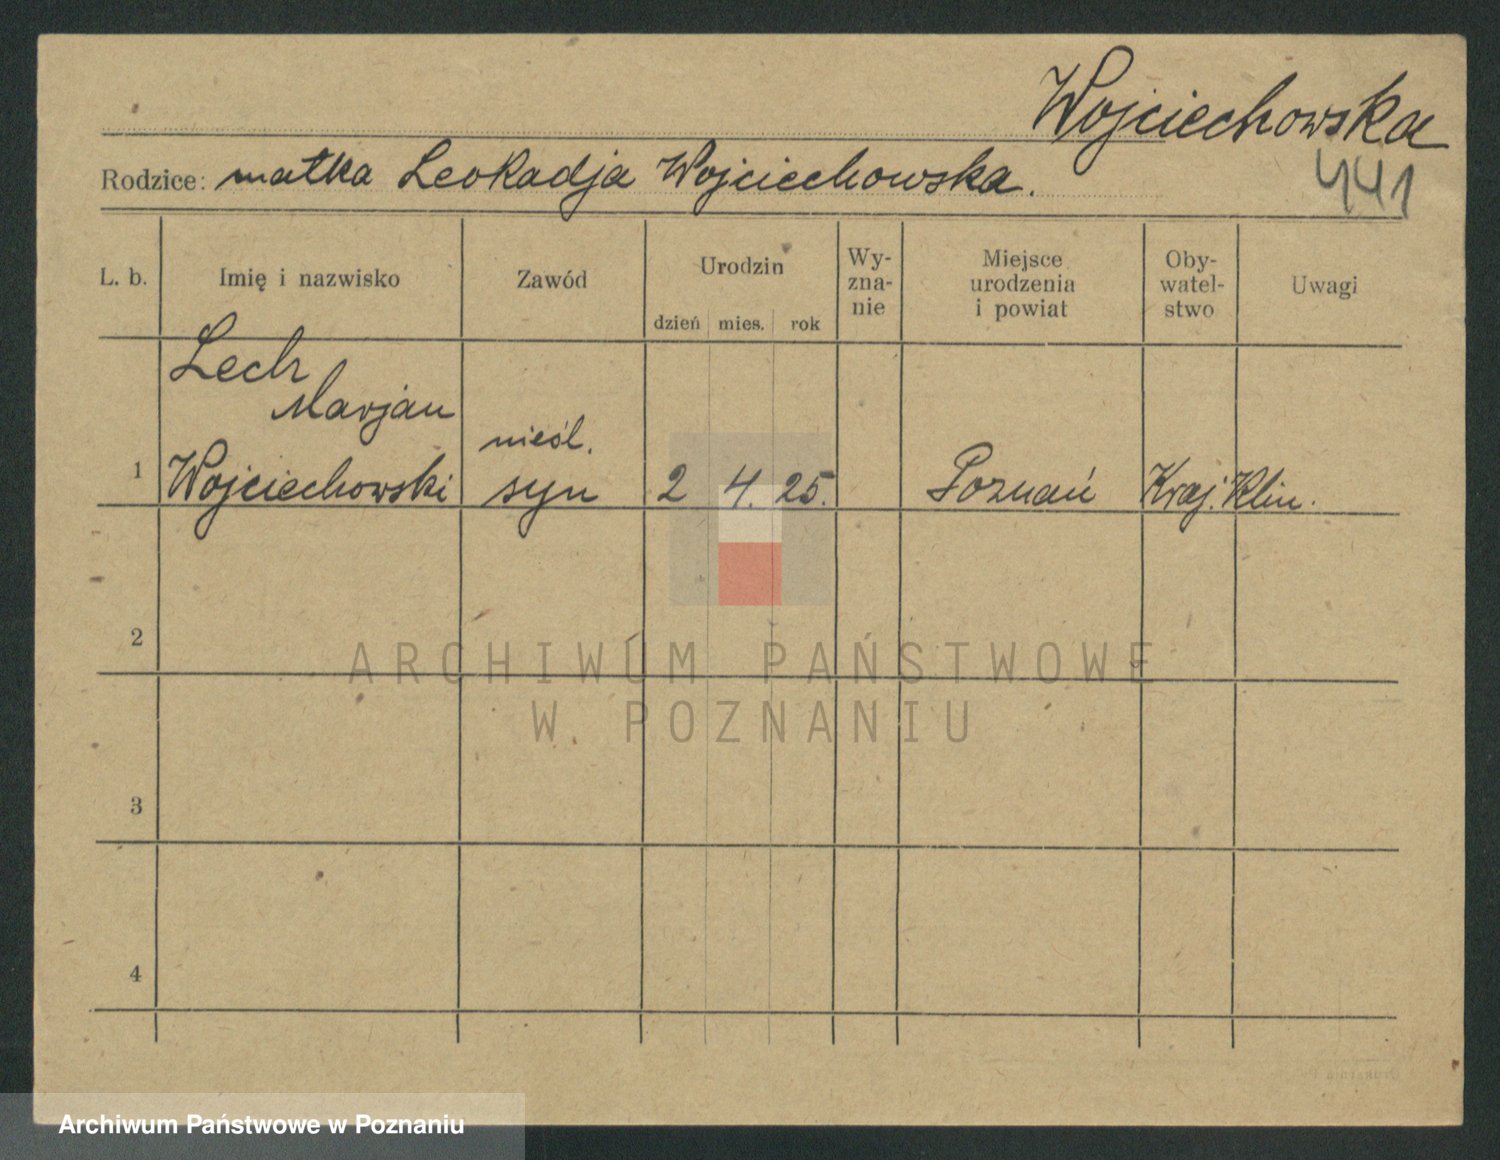 Wojciechowska
Rodzice: matka Leokadja Wojciechowska.
441
L. b.
Imię i nazwisko
Zawód
Urodzin
dzień mies. rok
Wy-
zna-
nie
Miejsce
urodzenia
i powiat
Oby-
watel-
stwo
Uwagi
Lech
Marjan
1 Wojciechowski
nieśl.
syn
2 4. 25.
Poznań
Kraj. Klin.
2
3
4
ARCHIWUM PAŃSTWOWE
W POZNANIU
Archiwum Państwowe w Poznaniu